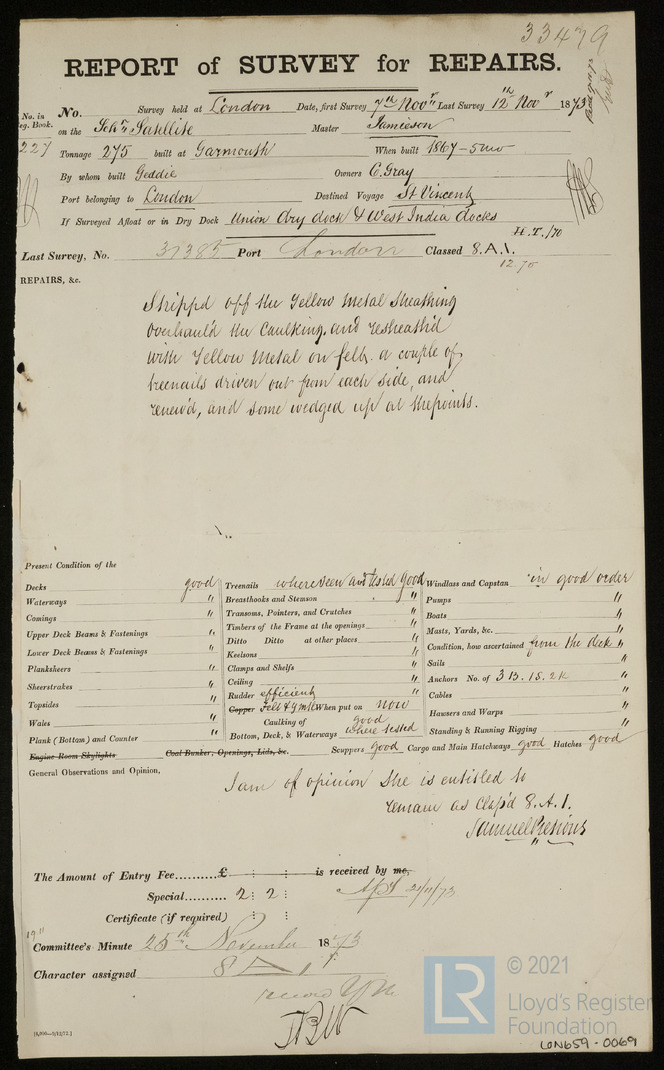 33479
REPORT of SURVEY for REPAIRS.
No. in
eg. Book.
227
No. Survey held at London Date, first Survey 7th Novr Last Survey 12th Novr 1873
on the Schr Satellite Master Jamieson
Tonnage 275 built at Garmouth When built 1867-5mo
By whom built Geddie Owners C. Gray
Port belonging to London Destined Voyage St Vincent
If Surveyed Afloat or in Dry Dock Union dry dock & West India docks
H.T./70
Last Survey, No. 31385 Port London Classed 8.A.1.
12.70
REPAIRS, &c.
Stripp'd off the Yellow Metal Sheathing
overhaul'd the Caulking, and resheath'd
with Yellow Metal on felt. a couple of
treenails driven out from each side, and
renew'd, and some wedged up at the points.
Present Condition of the
Decks good
Waterways "
Comings "
Upper Deck Beams & Fastenings "
Lower Deck Beams & Fastenings "
Planksheers "
Sheerstrakes "
Topsides "
Wales "
Plank (Bottom) and Counter "
Engine Room Skylights Coal Bunker, Openings, Lids, &c.
Treenails where seen and tested good
Breasthooks and Stemson "
Transoms, Pointers, and Crutches "
Timbers of the Frame at the openings "
Ditto Ditto at other places "
Keelsons "
Clamps and Shelfs "
Ceiling "
Rudder efficient "
Copper Felt & YM When put on now
Caulking of good
Bottom, Deck, & Waterways where tested
Scuppers good Cargo and Main Hatchways good Hatches good
Windlass and Capstan in good order
Pumps "
Boats "
Masts, Yards, &c. "
Condition, how ascertained from the deck "
Sails "
Anchors No. of 3 B. 1S. 2K "
Cables "
Hawsers and Warps "
Standing & Running Rigging "
General Observations and Opinion,
I am of opinion she is entitled to
remain as Class'd 8.A.1.
Samuel
The Amount of Entry Fee..........£ : : is received by me,
Special.......... 2 : 2 :
21/11/73
Certificate (if required) : :
19.11
Committee's Minute 25th November 1873
Character assigned 8 A 1
record YM
[4,000—9/12/72.]
© 2021
LR
Lloyd's Register
Foundation
LON659-0069